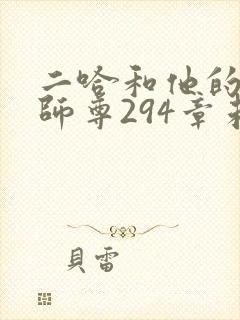 二哈和他的
師尊294章
貝雷